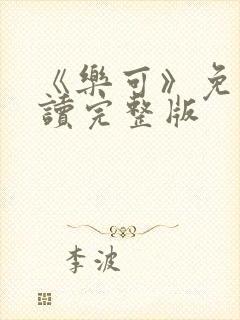 《樂可》免
讀完整版
李波